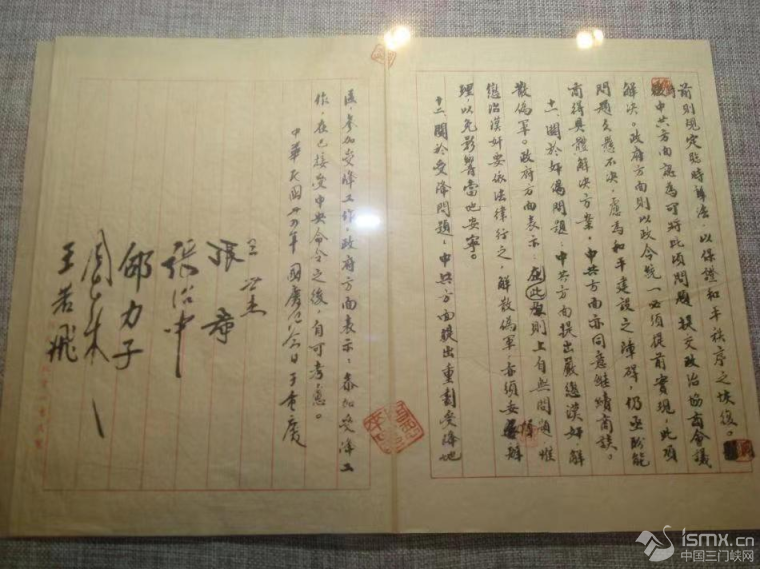 前則規定臨時辦法，以保證和平秩序之恢復。
中共方面認為可將此項問題提交政治協商會議
解决。政府方面則以政令統一必須提前實現，此項
問題久懸不决，應為和平建設之障碍，仍亟盼能
商得具體解决方案。中共方面亦同意繼續商談。
十一、關於奸偽問題：中共方面提出嚴懲漢奸，解
散偽軍。政府方面表示：在此原則上自無問題，惟
懲治漢奸要依法律行之，解散偽軍亦須妥慎辦
理，以免影響當地安寧。
十二、關於受降問題：中共方面提出重劃受降地
區，參加受降工作。政府方面表示：參加受降工
作，在已接受中央命令之後，自可考慮。
中華民國卅四年國慶紀念日于重慶
王世杰
張羣
張治中
邵力子
周恩來
王若飛
ismx.cn
中国三门峡网